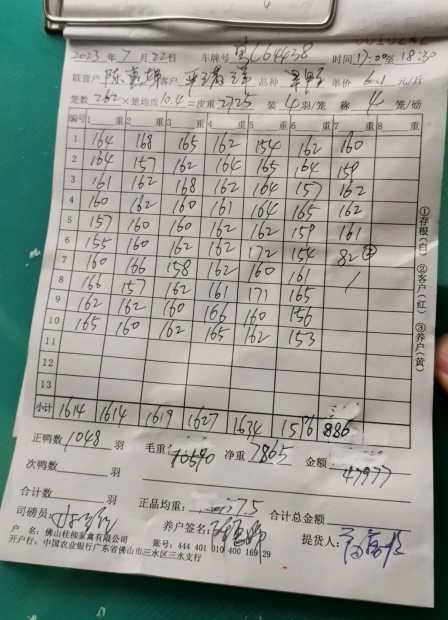 2023 年 7 月 22日 车牌号 粤C64438 时间 17:00至 18:30
联营户 客户 品种 单价 6.1 元/斤
笼数 262 ×笼均皮 10.4 =皮重 2725 装 4 羽/笼 称 4 笼/磅
编号 1 重 2 重 3 重 4 重 5 重 6 重 7 重 8 重
1 164 168 165 162 154 162 160
2 164 157 162 164 165 164 159
3 161 162 168 162 164 157 162
4 160 162 160 161 164 165 162
5 157 160 160 162 162 159 161
6 155 160 162 162 172 154 82 ②
7 160 166 158 162 160 161 /
8 166 157 162 161 171 165
9 162 162 160 166 160 156
10 165 160 162 165 162 153
11
12
13
小计 1614 1614 1619 1627 1634 1596 886
正鸭数 1048 羽 毛重: 10590 净重 7865 金额: 47977
次鸭数 羽
合计数 羽 正品均重: 7.5 合计总金额
司磅员: 养户签名: 提货人:
户 名: 佛山桂柳家禽有限公司 账号: 444 401 010 400 169 29
开户行: 中国农业银行广东省佛山市三水区三水支行
①存根(白) ②客户(红) ③养户(黄)